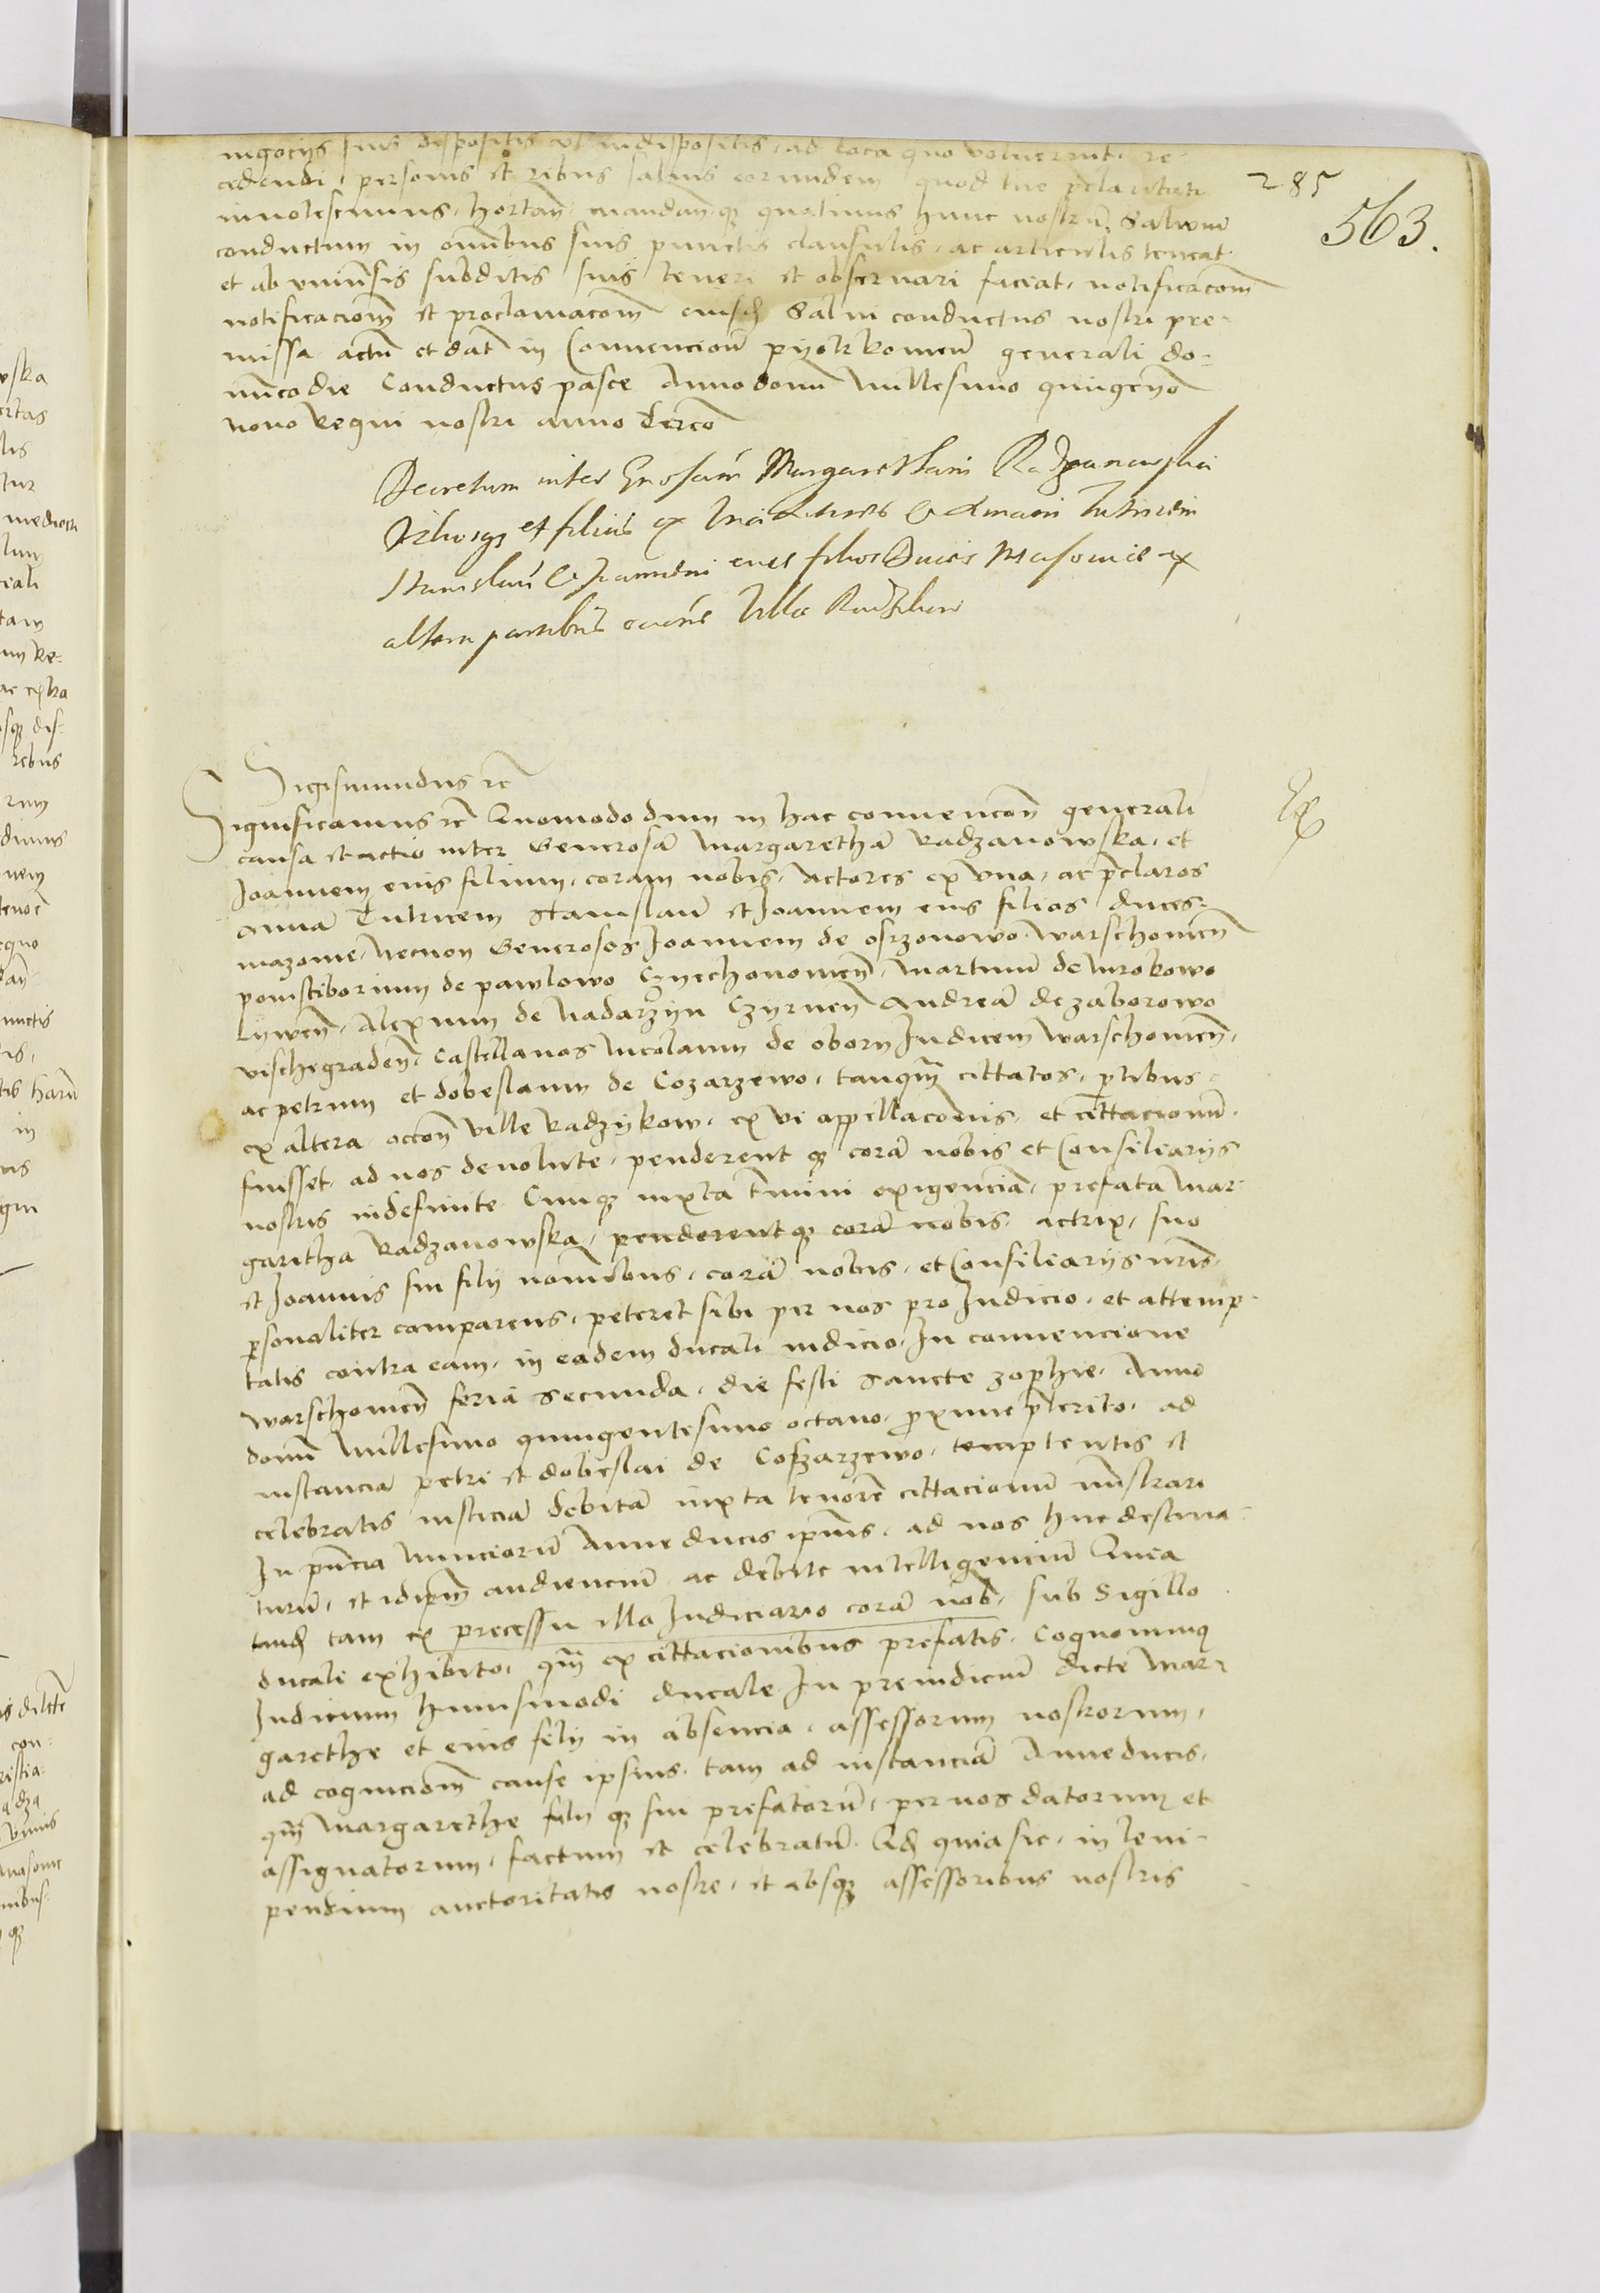 negocijs suis dispositis vel indispositis, ad loca quo voluerint, re-
cedendi, personis et rebus salvis eorundem quod tue
innotescimus, hortan mandan q quatinus hunc nostrum Salvum
conductum in omnibus suis punctis clausulis, ac articulis teneat
et ab universis subditis suis teneri et observari faciat, notificacom
notificaciom et proclamacom eiusd Salvi conductus nostri pre-
missa actu et dat in Convencion pijotrkowien generali do-
minico die Conductus pasce Anno domi Millesimo quingen
nono Regni nostri anno Terco
285
563.
Decretum inter Gnosam Margaretham Radzanowska
et filium ex Una Annam Tutricem
Stanislaum & Joannem eius filios Duces Masovie ex
altera partibus Villa Radzikow
Sigismundus rc
Significamus rc Quomodo dum in hac convencion generali
causa et actio inter Generosa Margaretha Radzanowska, et
Joannem eius filium, coram nobis, actores ex una, ac pclaros
Anna Tutricem Stanislau et Joannem eius filios duces
mazovie, Necnon Generosos Joannem de osrzonowo warschovien
pomstiborium de pawlowo Czyechonowien, Martinum de Mrokowo
Lywen, Alexium de Nadarzyn Czyrnen Andrea de zaborowo
vischegraden, Castellanos Nicolaum de obory Iudicem warschovien,
ac petrum et dobeslaum de Cozarzewo, tanqm cittatos, ptibus
ex altera, occon ville Radzykow, ex vi appellaconis, et cittacionu
fuisset, ad nos devolute, penderent q cora nobis et Consiliarijs
nostris indefinite Cumq iuxta tmini exigencia, prefata Mar-
garetha Radzanowska, penderent q cora nobis, actrix, suo
et Joannis sui filij nominibus, cora nobis, et Consiliarijs nris,
psonaliter comparens, peteret sibi per nos pro Iudicio, et attemp-
tatis contra eam, in eadem ducali iudicio, In convencione
warschovien feria secunda, die festi sancte zophie, Anno
domi Millesimo quingentesimo octavo, pxime pterito, ad
instancia petri et dobeslai de Coszarzewo, temptentis et
celebratis iusticia debita iuxta tenore cittacionu mistrari
In pncia Nunciorum Anne ducis ipius, ad nos huc destina-
turu, et idipm audienciu ac debite intelligenciu Quia
tand tam ex precessu illo Iudiciario cora nob, sub Sigillo
ducali exhibito, qm ex cittacionibus prefatis, Cognovimus
Iudicium huiusmodi ducale In preiudiciu dicte Mar-
garethe et eius filij in absencia, assessorum nostrorum,
ad cogniciom cause ipsius, tam ad instancia Anne ducis,
qm Margarethe filij q sui prefatoru, per nos datorum et
assignatorum, factum et celebratu. Id quia sic, in levi-
pendium auctoritatis nostre, et absq assessoribus nostris